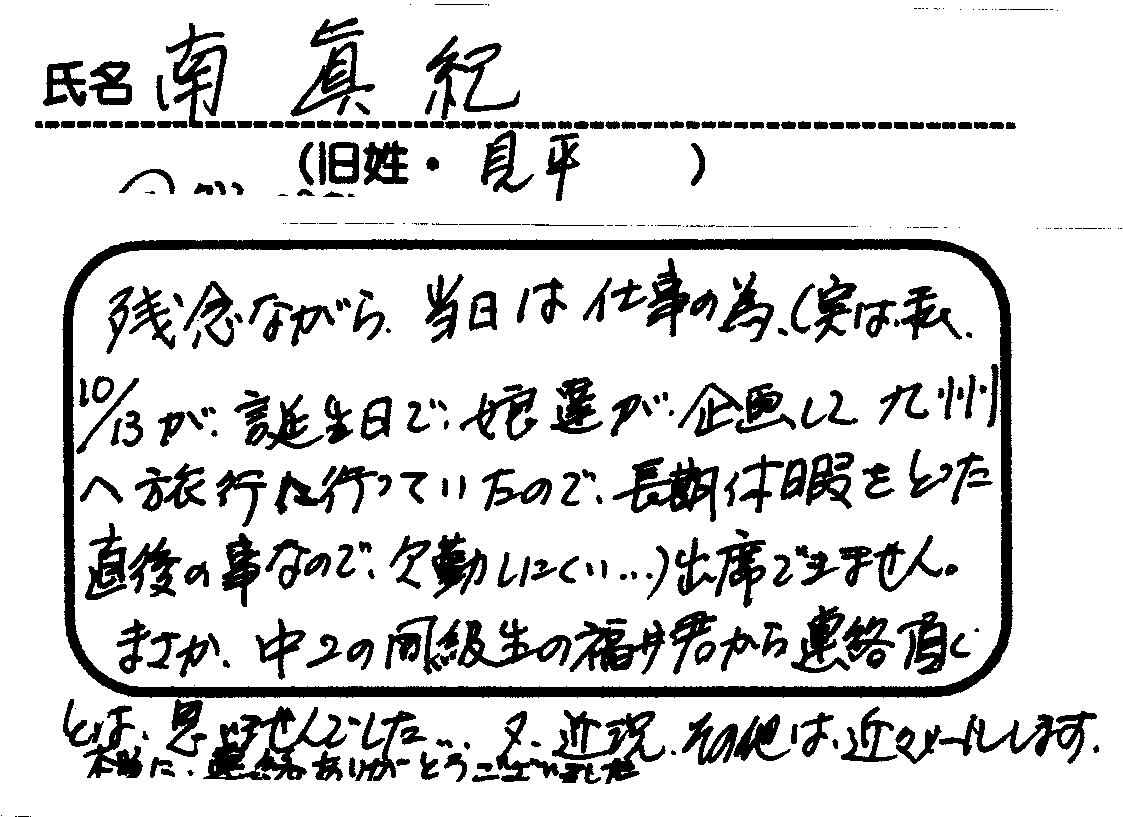 氏名 南 眞紀
(旧姓・見平 )
残念ながら、当日は仕事の為、(実は、私、
10/13が、誕生日で、娘達が、企画して九州
へ旅行に行っていたので、長期休暇をとった
直後の事なので、欠勤しにくい…)出席できません。
まさか、中2の同級生の福井君から連絡頂く
とは、思いませんでした…。又、近況、その他は、近々メールします。
本当に、連絡ありがとうございました